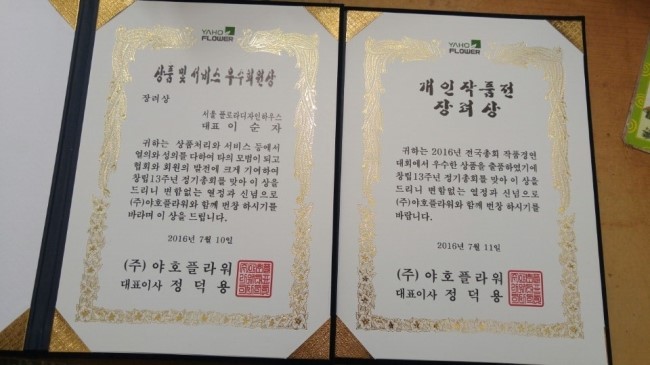 YAHO
FLOWER
상품 및 서비스 우수회원상
장려상
서울 플로라디자인하우스
대표 이 순 자
귀하는 상품처리와 서비스 등에서
열의와 성의를 다하여 타의 모범이 되고
협회와 회원의 발전에 크게 기여하여
창립13주년 정기총회를 맞아 이 상을
드리니 변함없는 열정과 신념으로
(주)야호플라워와 함께 번창 하시기를
바라며 이 상을 드립니다.
2016년 7월 10일
(주) 야호플라워
대표이사 정 덕 용
YAHO
FLOWER
개인작품전
장려상
귀하는 2016년 전국총회 작품경연
대회에서 우수한 상품을 출품하였기에
창립13주년 정기총회를 맞아 이 상을
드리니 변함없는 열정과 신념으로
(주)야호플라워와 함께 번창 하시기를
바랍니다.
2016년 7월 11일
(주) 야호플라워
대표이사 정 덕 용